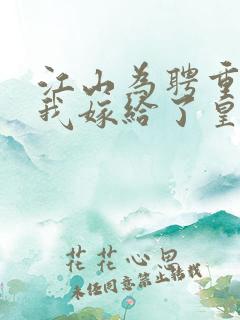 江山为聘重
我嫁给了皇
花花心思
未经同意禁止转载